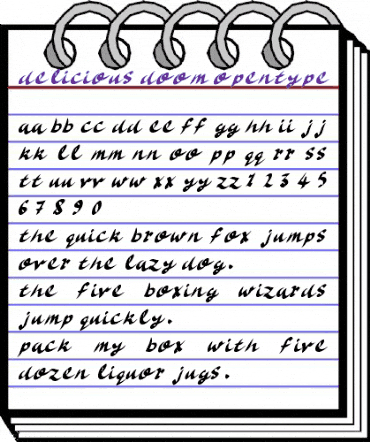 delicious doom opentype
aa bb cc dd ee ff gg hh ii jj
kk ll mm nn oo pp qq rr ss
tt uu vv ww xx yy zz 1 2 3 4 5
6 7 8 9 0
the quick brown fox jumps
over the lazy dog.
the five boxing wizards
jump quickly.
pack my box with five
dozen liquor jugs.